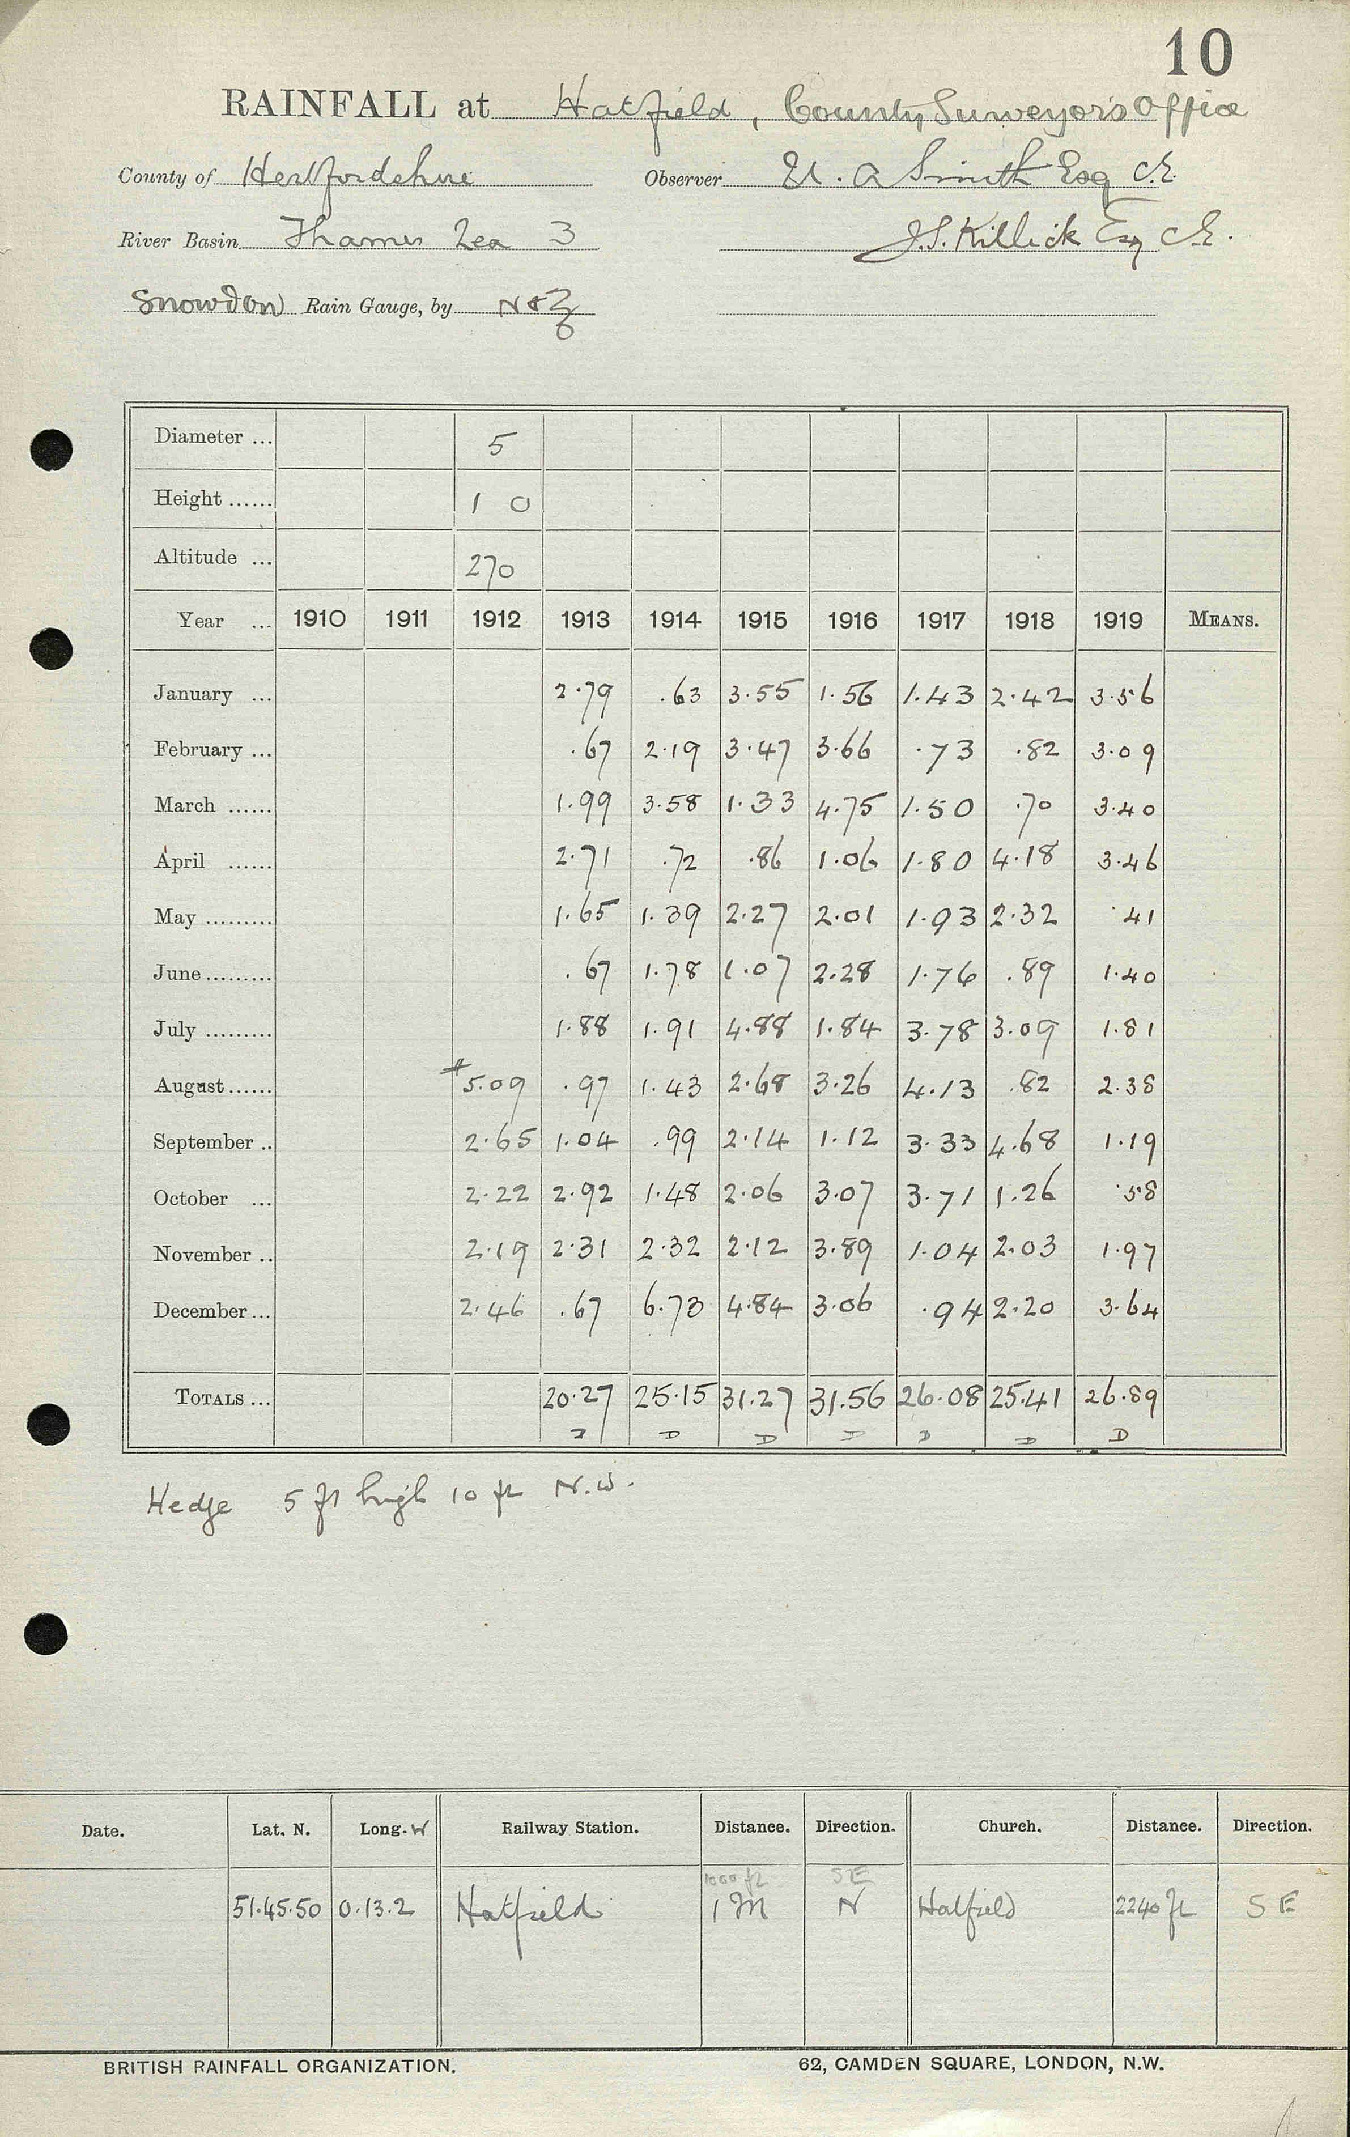 10
RAINFALL at Hatfield, County Surveyor's Office
County of Hertfordshire Observer U. A Smith Esq C.E.
River Basin Thames Lea 3 J.S. Killick Esq C.E.
Snowdon Rain Gauge, by N & Z
Diameter ... 5
Height ...... 1 0
Altitude ... 270
Year ... 1910 1911 1912 1913 1914 1915 1916 1917 1918 1919 MEANS.
January ... 2.79 .63 3.55 1.56 1.43 2.42 3.56
February ... .67 2.19 3.47 3.66 .73 .82 3.09
March ...... 1.99 3.58 1.33 4.75 1.50 .70 3.40
April ...... 2.71 .72 .86 1.06 1.80 4.18 3.46
May ......... 1.65 1.39 2.27 2.01 1.93 2.32 .41
June ......... .67 1.78 1.07 2.28 1.76 .89 1.40
July ......... 1.88 1.91 4.88 1.84 3.78 3.09 1.81
August ...... 5.09 .97 1.43 2.68 3.26 4.13 .82 2.38
September .. 2.65 1.04 .99 2.14 1.12 3.33 4.68 1.19
October ... 2.22 2.92 1.48 2.06 3.07 3.71 1.26 .58
November .. 2.19 2.31 2.32 2.12 3.89 1.04 2.03 1.97
December ... 2.46 .67 6.73 4.84 3.06 .94 2.20 3.64
TOTALS ... 20.27 25.15 31.27 31.56 26.08 25.41 26.89
D D D D D D D
Hedge 5 ft high 10 ft N.W.
Date. Lat. N. Long. W Railway Station. Distance. Direction. Church. Distance. Direction.
1000 ft SE
51.45.50 0.13.2 Hatfield 1 M N Hatfield 2240 ft S E
BRITISH RAINFALL ORGANIZATION. 62, CAMDEN SQUARE, LONDON, N.W.